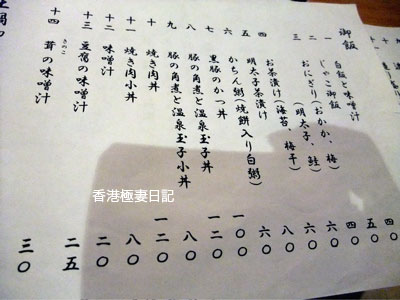 御飯
一 白飯と味噌汁
二 じゃこ御飯
三 おにぎり(おかか、梅)
(明太子、鮭)
四 お茶漬け(海苔、梅干)
五 明太子茶漬け
六 かちん粥(焼餅入り白粥)
七 黒豚のかつ丼
八 豚の角煮と温泉玉子丼
九 豚の角煮と温泉玉子小丼
十 焼き肉丼
十一 焼き肉小丼
十二 味噌汁
十三 豆腐の味噌汁
きのこ
十四 茸の味噌汁
四〇
五〇
四〇
六〇
六〇
八〇
六〇
一〇〇
一二〇
八〇
一二〇
八〇
二〇
二五
三〇
香港極妻日記